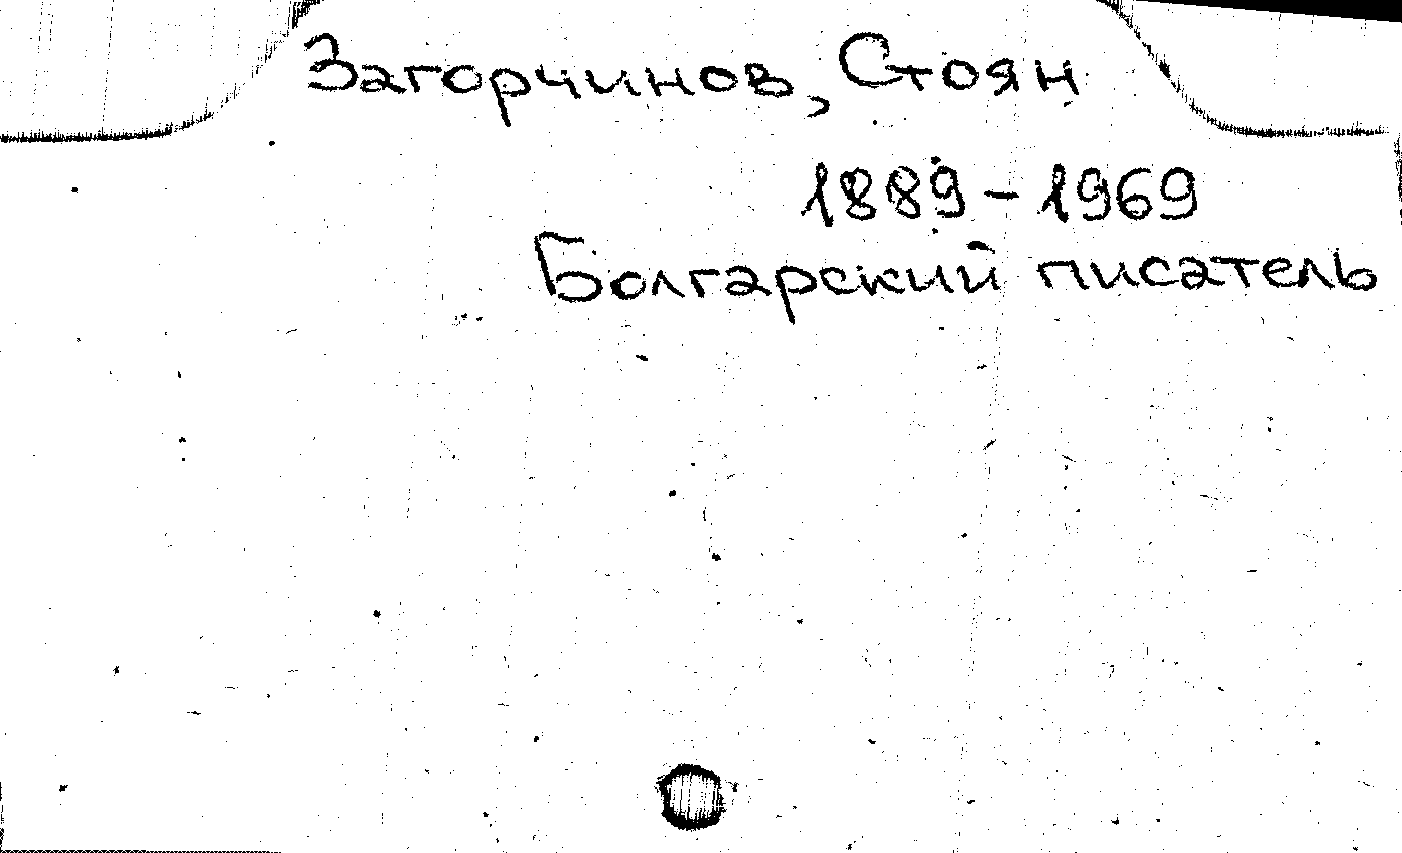 Загорчинов, Стоян
1889 - 1969
Болгарский писатель